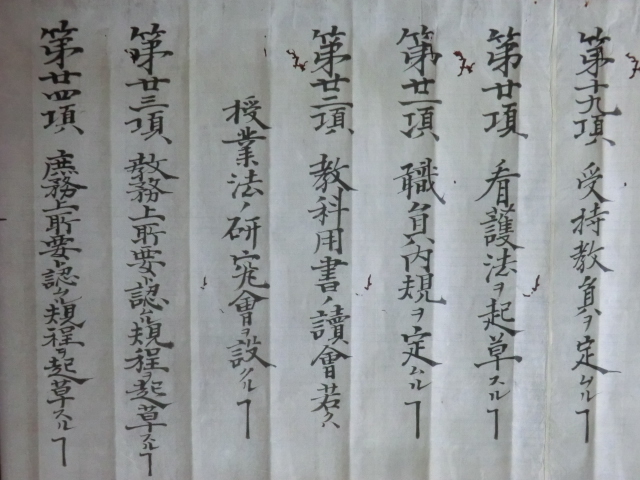 第十九項 受持教員ヲ定ムルヿ
第廿項 看護法ヲ起草スルヿ
第廿一項 職員内規ヲ定ムルヿ
第廿二項 教科用書ノ讀會若クハ
授業法ノ研究會ヲ設クルヿ
第廿三項 教務上所要ト認ムル規程ヲ起草スルヿ
第廿四項 庶務上所要ト認ムル規程ヲ起草スルヿ